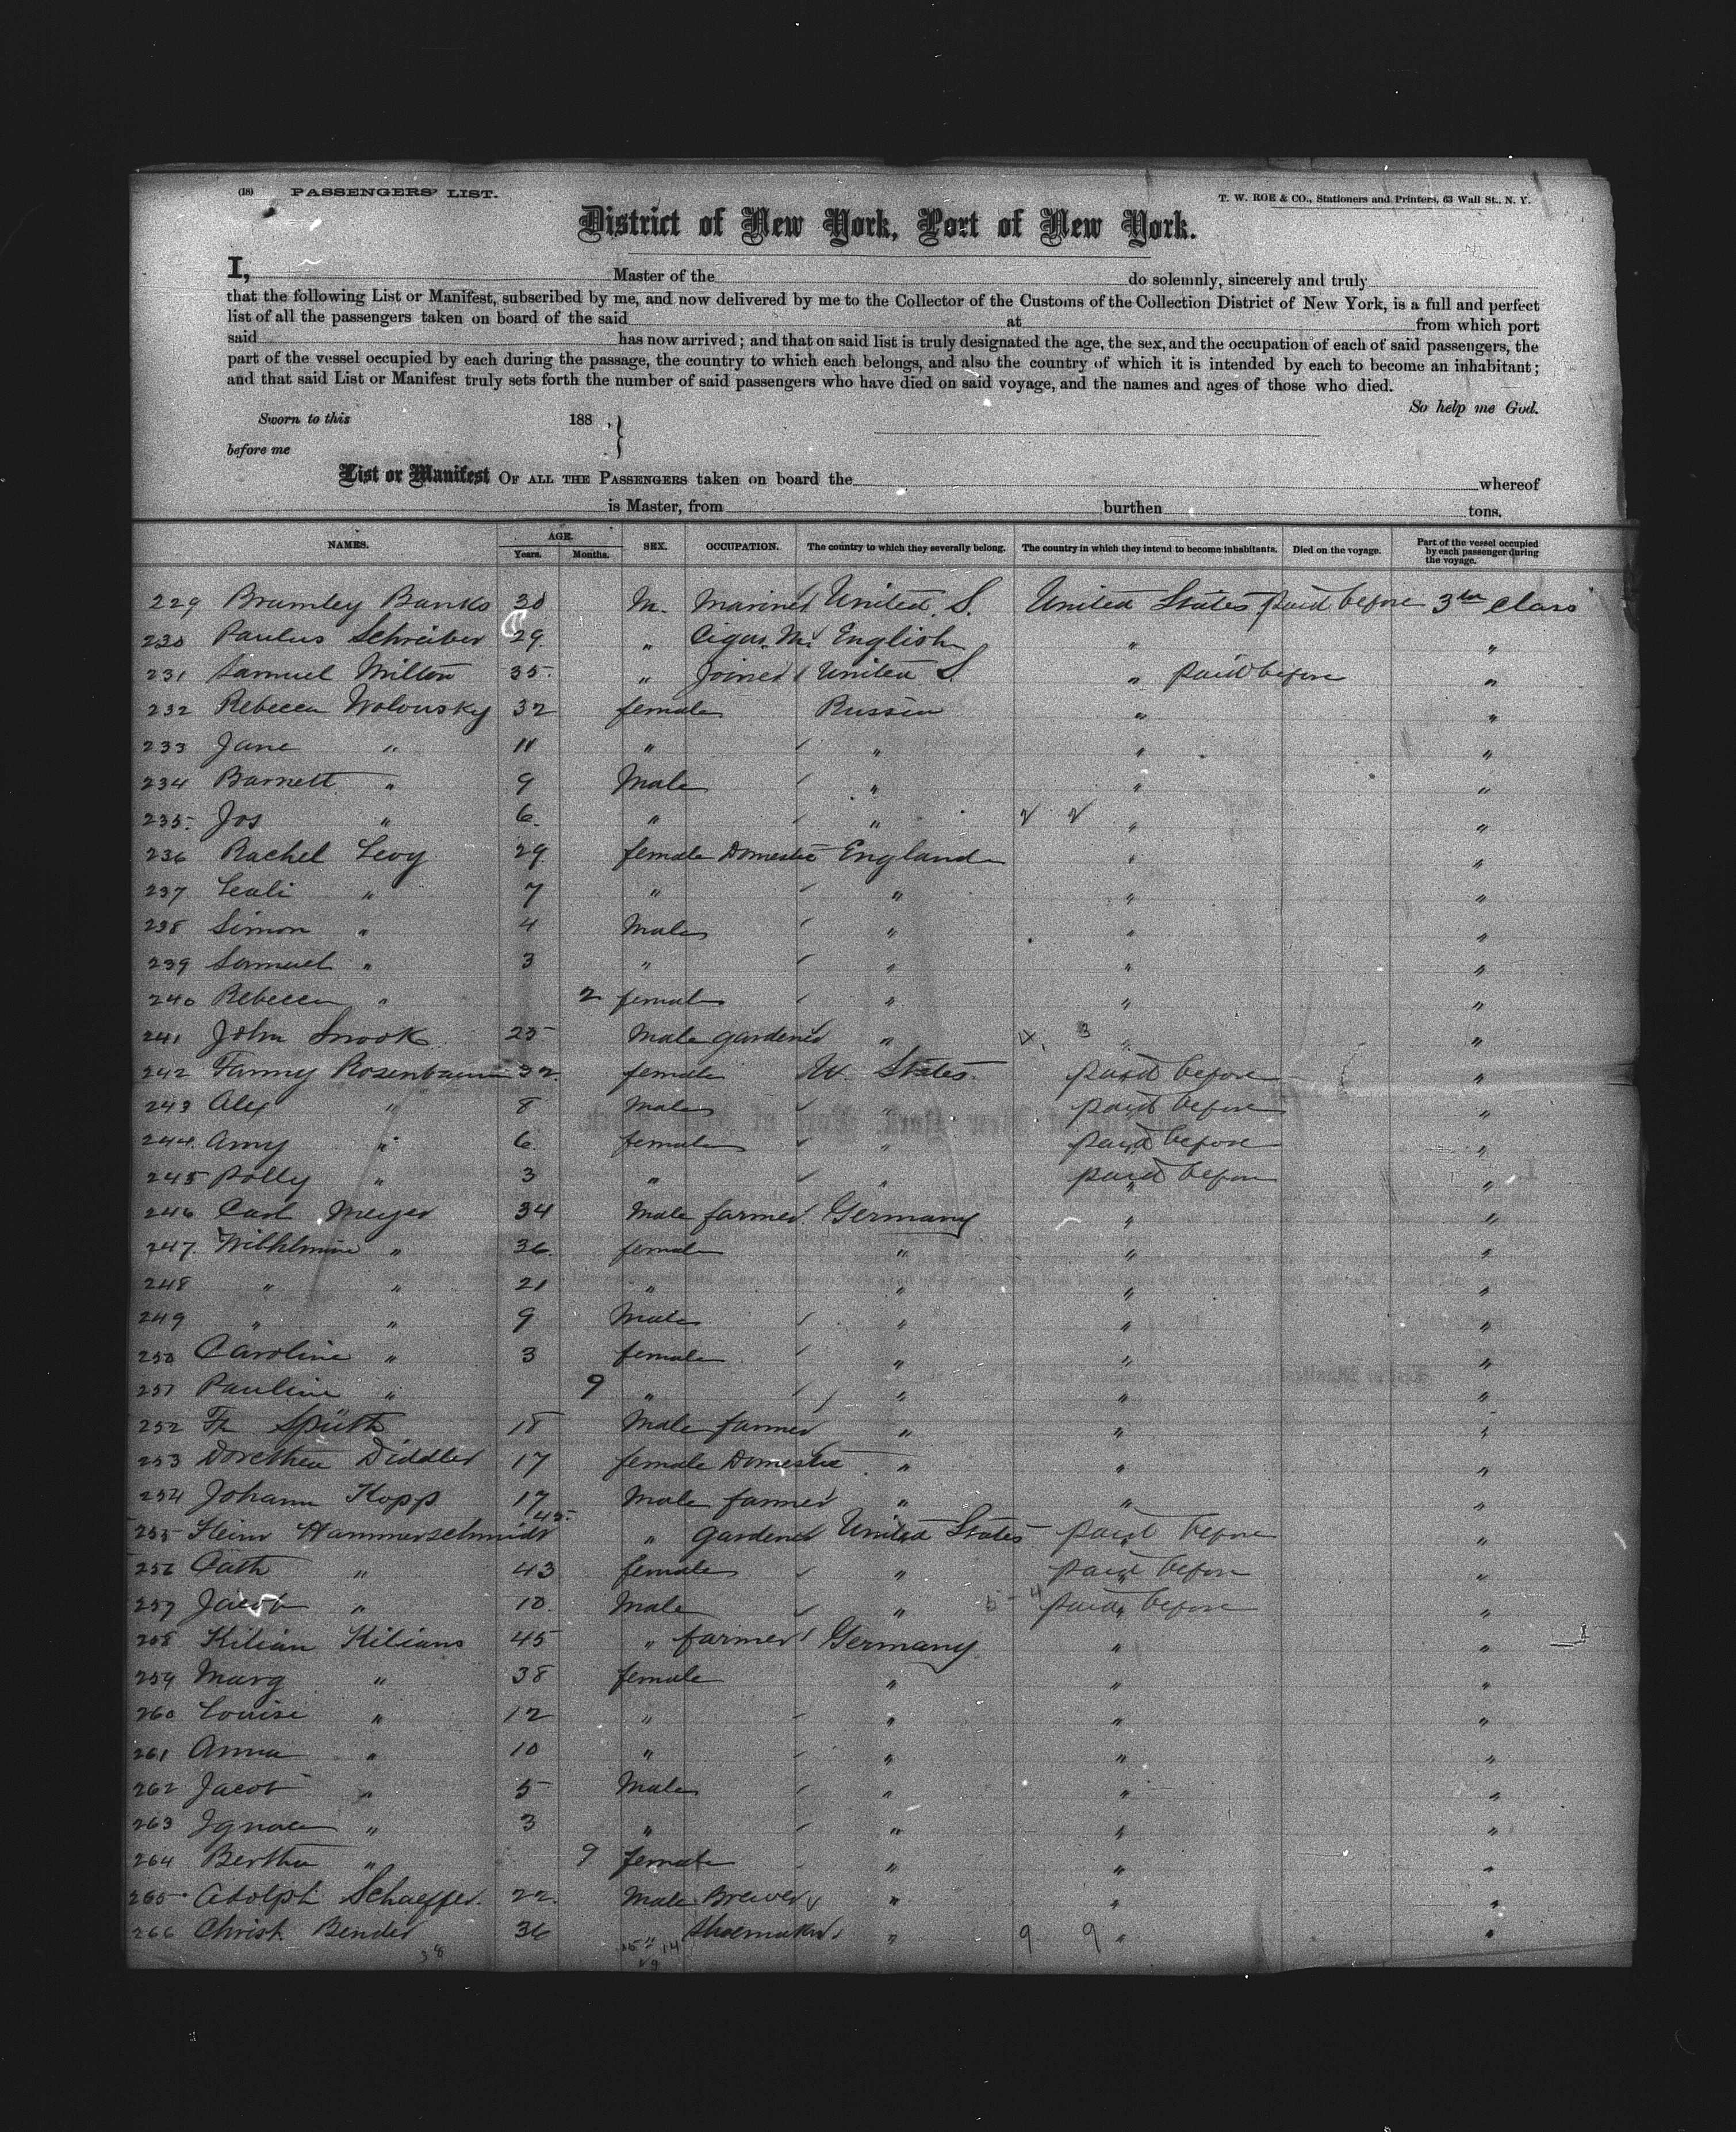 (18) PASSENGERS' LIST. T. W. ROE & CO., Stationers and Printers, 63 Wall St., N. Y.
District of New York, Port of New York.
I, Master of the do solemnly, sincerely and truly
that the following List or Manifest, subscribed by me, and now delivered by me to the Collector of the Customs of the Collection District of New York, is a full and perfect
list of all the passengers taken on board of the said at from which port
said has now arrived; and that on said list is truly designated the age, the sex, and the occupation of each of said passengers, the
part of the vessel occupied by each during the passage, the country to which each belongs, and also the country of which it is intended by each to become an inhabitant;
and that said List or Manifest truly sets forth the number of said passengers who have died on said voyage, and the names and ages of those who died.
So help me God.
Sworn to this 188 ,
before me
List or Manifest OF ALL THE PASSENGERS taken on board the whereof
is Master, from burthen tons.
NAMES. AGE. Years. Months. SEX. OCCUPATION. The country to which they severally belong. The country in which they intend to become inhabitants. Died on the voyage. Part of the vessel occupied by each passenger during the voyage.
229 Bramley Banks 30 M. Mariner United S. United States paid before 3rd class
230 Paulus Schreiber 29. " Cigar. M. English " "
231 Samuel Milton 35. " Joiner United S. " paid before "
232 Rebecca Wolonsky 32 female Russia " "
233 Jane " 11 " " " "
234 Barnett " 9 Male " " "
235. Jos " 6. " " " "
236 Rachel Levy 29 female Domestic England " "
237 Leali " 7 " " " "
238 Simon " 4 Male " " "
239 Samuel " 3 " " " "
240 Rebecca " 2 female " " "
241 John Snook 25 Male gardener " 3 " "
242 Fanny Rosenbaum 32. female U. States. paid before "
243 Alex " 8 Male " paid before "
244. Amy " 6. female " paid before "
245 Polly " 3 " " paid before "
246 Carl Meyer 34 Male farmer Germany " "
247. Wilhelmine " 36. female " " "
248 " " 21 " " " "
249 " " 9 Male " " "
250 Caroline " 3 female " " "
251 Pauline " 9 " " " "
252 Fr Späth 18 Male farmer " " "
253 Dorethea Diddler 17 female Domestic " " "
254 Johann Kopp 17 Male farmer " " "
255 Heinr Hammerschmidt 45. " gardener United States paid before "
256 Cath " 43 female " paid before "
257 Jacob " 10. Male " paid before "
258 Kilian Kilians 45 " farmer Germany " "
259 Marg " 38 female " " "
260 Louise " 12 " " " "
261 Anna " 10 " " " "
262 Jacob " 5 Male " " "
263 Ignace " 3 " " " "
264 Bertha " 9 female " " "
265 Adolph Schaeffer. 22. Male Brewer " " "
266 Christ. Bender 36 " Shoemaker " 9 9 " "
38